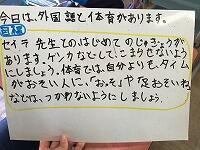 今日は、外国語と体育があります。
セイラ先生とのはじめてのじゅぎょうが
あります。ケンカなどして、こまらせないよう
にしましょう。体育では、自分よりも、タイム
がおそい人に、「おっそ」や「足おそいね」
などは、つかわないようにしましょう。